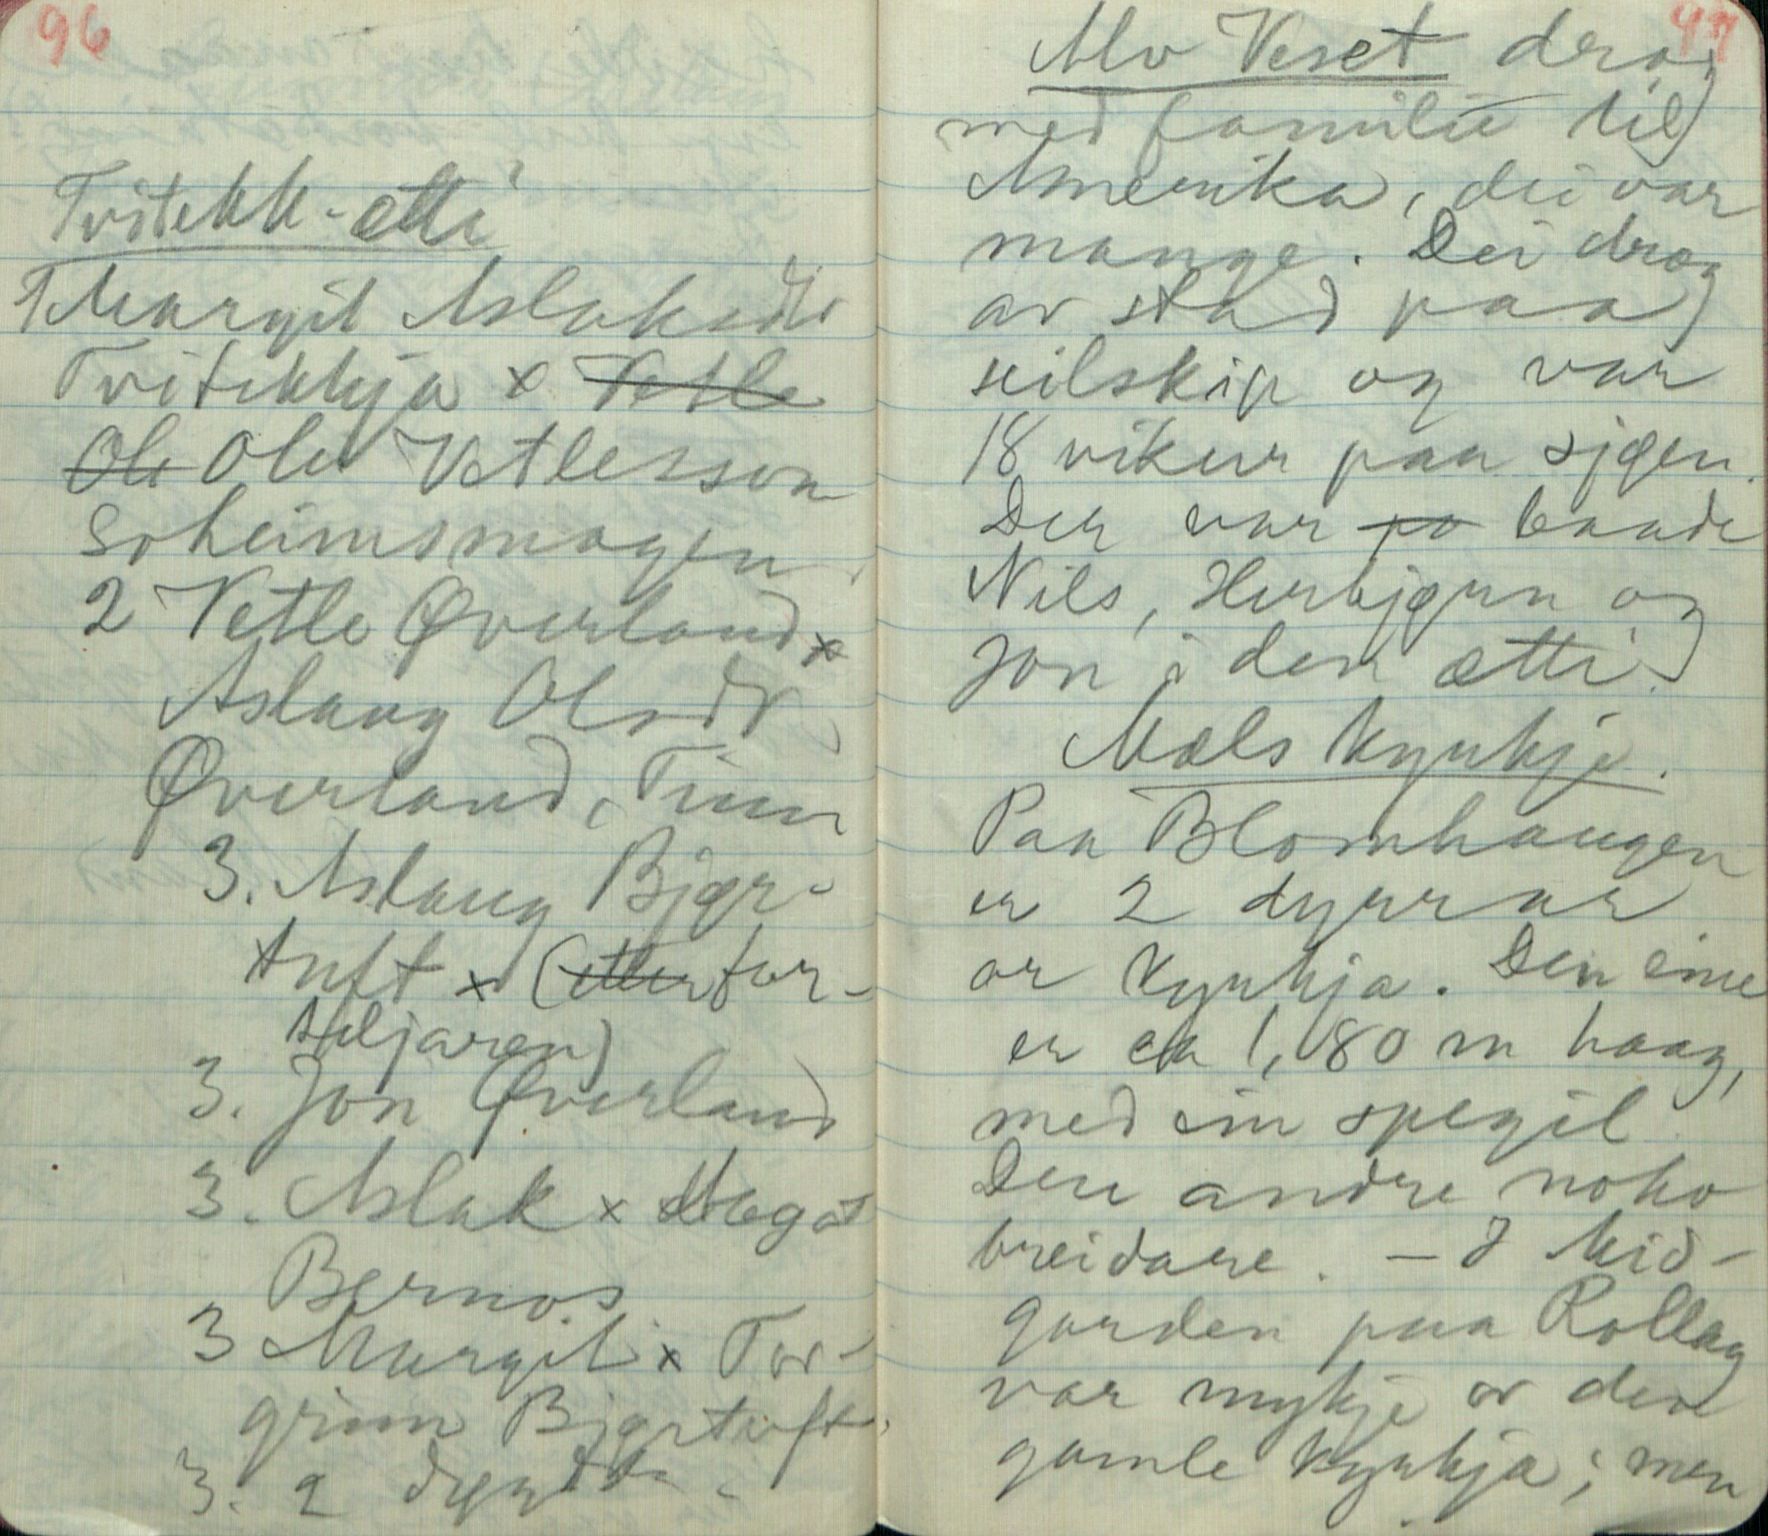 96
Tvitekk-ætti
1 Margit Aslaksdtr
Tvitekkja x ~~Vetle~~
~~Ole~~ Olav Vetlesson
Soheimsmogen.
2 Vetle Øverland x
Aslaug Olsdtr
Øverland, Tinn
3. Aslaug Bjør-
tuft x (~~etter~~ for-
teljaren)
3. Jon Øverland
3. Aslak x
Bernos
3 Margit x Tor-
grim Bjørtuft.
3. 2
97
Alv Veset drog
med familie til
Amerika, dei var
mange. Dei drog
av stad paa
seilskip og var
18 vikur paa sjøen.
Der var ~~po~~ baade
Nils, Herbjørn og
Jon i den ætti.
Mæls kyrkje.
Paa Blomhaugen
er 2 dyrrar
or kyrkja. Den eine
er ca 1,80 m haag,
med ein spegil
Den andre noko
breidare. — I Mid-
garden paa Rollag
var mykje av den
gamle kyrkja; men